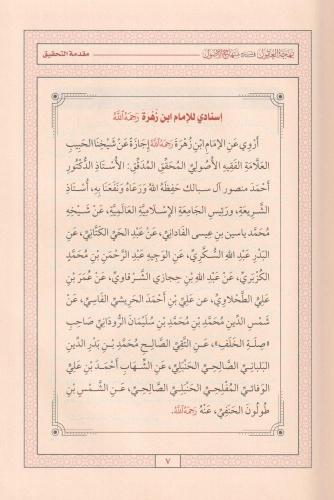 مقدمة التحقيق
إسنادي للإمام ابن زُهْرة رَحِمَهُ اللَّهُ
أَرْوِي عَنِ الإِمَامِ ابْنِ زُهْرَةَ رَحِمَهُ اللَّهُ إِجَازَةً عَنْ شَيْخِنَا الحَبِيبِ
العَلَّامَةِ الفَقِيهِ الأُصُولِيِّ المُحَقِّقِ المُدَقِّقِ: الأُسْتَاذِ الدُّكْتُورِ
أَحْمَدَ منصور آل سبالك حَفِظَهُ اللهُ وَرَعَاهُ وَنَفَعَنَا بِهِ، أُسْتَاذِ
الشَّرِيعَةِ، ورئيس الجَامِعَةِ الإِسْلَامِيَّةِ العَالَمِيَّةِ، عَنْ شَيْخِهِ
مُحَمَّد ياسين بن عيسى الفَادَانِيِّ، عَنْ عَبْدِ الحَيِّ الكَتَّانِيِّ، عَنِ
البَدْرِ عَبْدِ اللهِ السُّكَّرِيِّ، عَنِ الوَجِيهِ عَبْدِ الرَّحْمَنِ بْنِ مُحَمَّدٍ
الكُزْبَرِيِّ، عَنْ عَبْدِ اللهِ بْنِ حِجَازِي الشَّرْقَاوِيِّ، عَنْ عُمَرَ بْنِ
عَلِيٍّ الطَّحْلَاوِيِّ، عن عَلِيِّ بْنِ أَحْمَدَ الحَرِيشِيِّ الفَاسِيِّ، عَنْ
شَمْسِ الدِّينِ مُحَمَّدِ بْنِ مُحَمَّدِ بْنِ سُلَيْمَانَ الرُّودَانِيِّ صَاحِبِ
«صِلَةِ الخَلَفِ»، عَنِ التَّقِيِّ الصَّالِحِ مُحَمَّدِ بْنِ بَدْرِ الدِّينِ
البَلْبَانِيِّ الصَّالِحِيِّ الحَنْبَلِيِّ، عَنِ الشِّهَابِ أَحْمَدَ بْنِ عَلِيٍّ
الوَفَائِيِّ المُفْلِحِيِّ الحَنْبَلِيِّ الصَّالِحِيِّ، عَنِ الشَّمْسِ بْنِ
طُولُونَ الحَنَفِيِّ، عَنْهُ رَحِمَهُ اللَّهُ.
٧